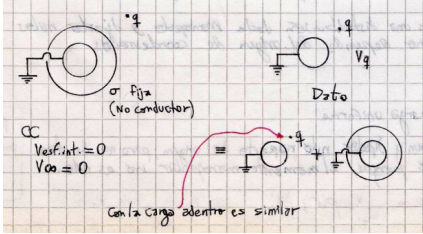 • q
• q
V_q
σ fija
(No conductor)
Dato
CC
Vesf.int. = 0
V∞ = 0
≡
• q
+
Con la carga adentro es similar